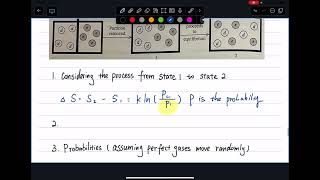 Partition removed
Proceeds to equilibrium
1
2
1. Considering the process from state 1 to state 2
Δ S = S₂ - S₁ = k ln ( P₂ / P₁ ) P is the probability
2.
3. Probabilities ( assuming perfect gases move randomly )